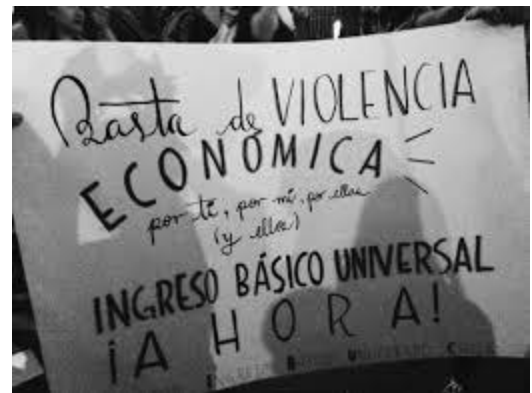 Basta de VIOLENCIA
ECONÓMICA
por ti, por mí, por ellas
(y ellos)
INGRESO BÁSICO UNIVERSAL
¡AHORA!